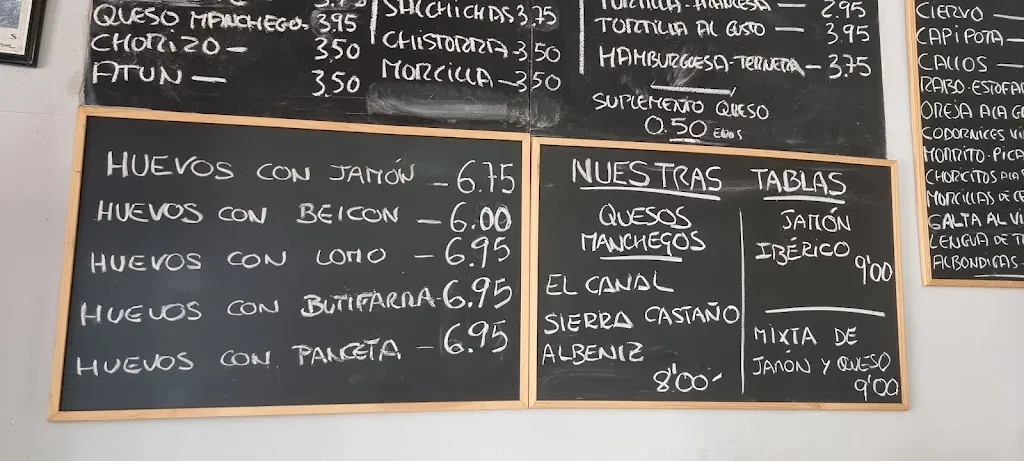 QUESO MANCHEGO. 3,95
CHORIZO — 3,50
ATUN — 3,50
SALCHICHAS 3,75
CHISTORRA - 3,50
MORCILLA - 3,50
TORTILLA - FRANCESA — 2.95
TORTILLA AL GUSTO — 3.95
HAMBURGUESA - TERNERA — 3.75
SUPLEMENTO QUESO
0.50
HUEVOS CON JAMÓN — 6.75
HUEVOS CON BEICON — 6.00
HUEVOS CON LOMO — 6.95
HUEVOS CON BUTIFARRA - 6.95
HUEVOS CON PANCETA — 6.95
NUESTRAS TABLAS
QUESOS
MANCHEGOS
EL CANAL
SIERRA CASTAÑO
ALBENIZ
8'00
JAMÓN
IBÉRICO
9'00
MIXTA DE
JAMÓN Y QUESO
9'00
CIERVO —
CAPIPOTA —
CALLOS —
RABO ESTOFA
OREJA A LA G
CODORNICES VI
MORRITO - PICA
CHORICITOS A LA
MORCILLAS DE CE
GALTA AL VI
LENGUA DE T
ALBONDIGAS -